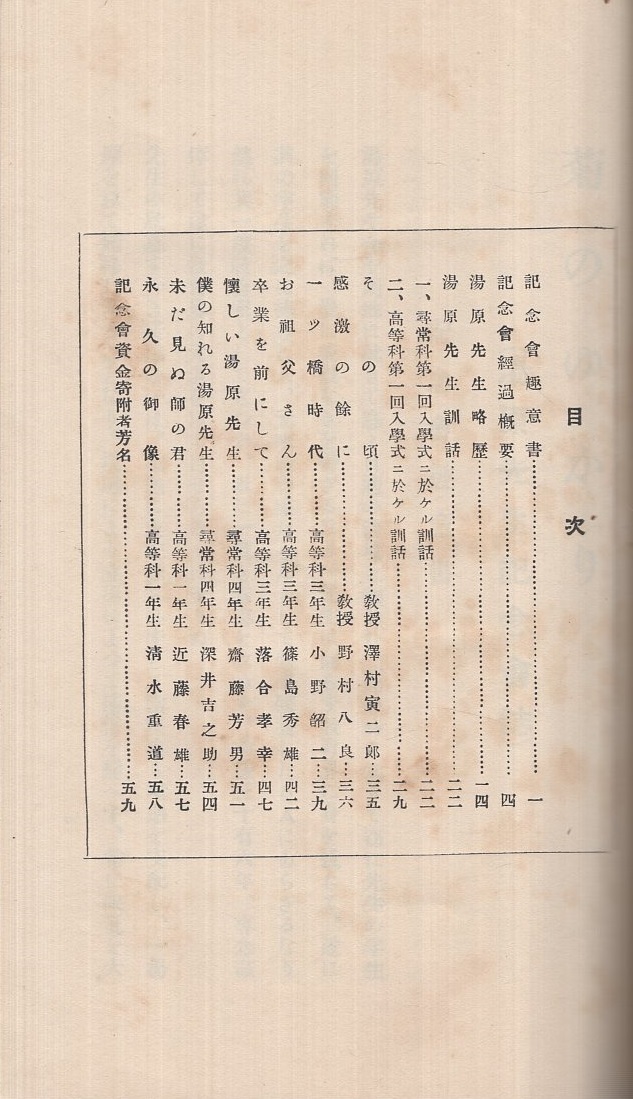 目次
記念會趣意書……………一
記念會經過概要……………四
湯原先生略歷……………一四
湯原先生訓話……………二二
一、尋常科第一回入學式ニ於ケル訓話……………二二
二、高等科第一回入學式ニ於ケル訓話……………二九
その頃……………教授 澤村寅二郎……三五
感激の餘に……………教授 野村八良……三六
一ツ橋時代……………高等科三年生 小野韶二……三九
お祖父さん……………高等科三年生 篠島秀雄……四二
卒業を前にして……………高等科三年生 落合孝幸……四七
懷しい湯原先生……………尋常科四年生 齋藤芳男……五一
僕の知れる湯原先生……………尋常科四年生 深井吉之助……五四
未だ見ぬ師の君……………高等科一年生 近藤春雄……五七
永久の御像……………高等科一年生 淸水重道……五八
記念會資金寄附者芳名……………五九